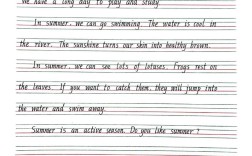 We have a long day to play and study.
In summer, we can go swimming. The water is cool in
the river. The sunshine turns our skin into healthy brown.
In summer, we can see lots of lotuses. Frogs rest on
the leaves. If you want to catch them, they will jump into
the water and swim away.
Summer is an active season. Do you like summer?